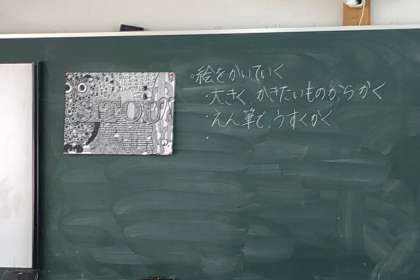 ・絵をかいていく
・大きく、かきたいものからかく
・えん筆で、うすくかく
・